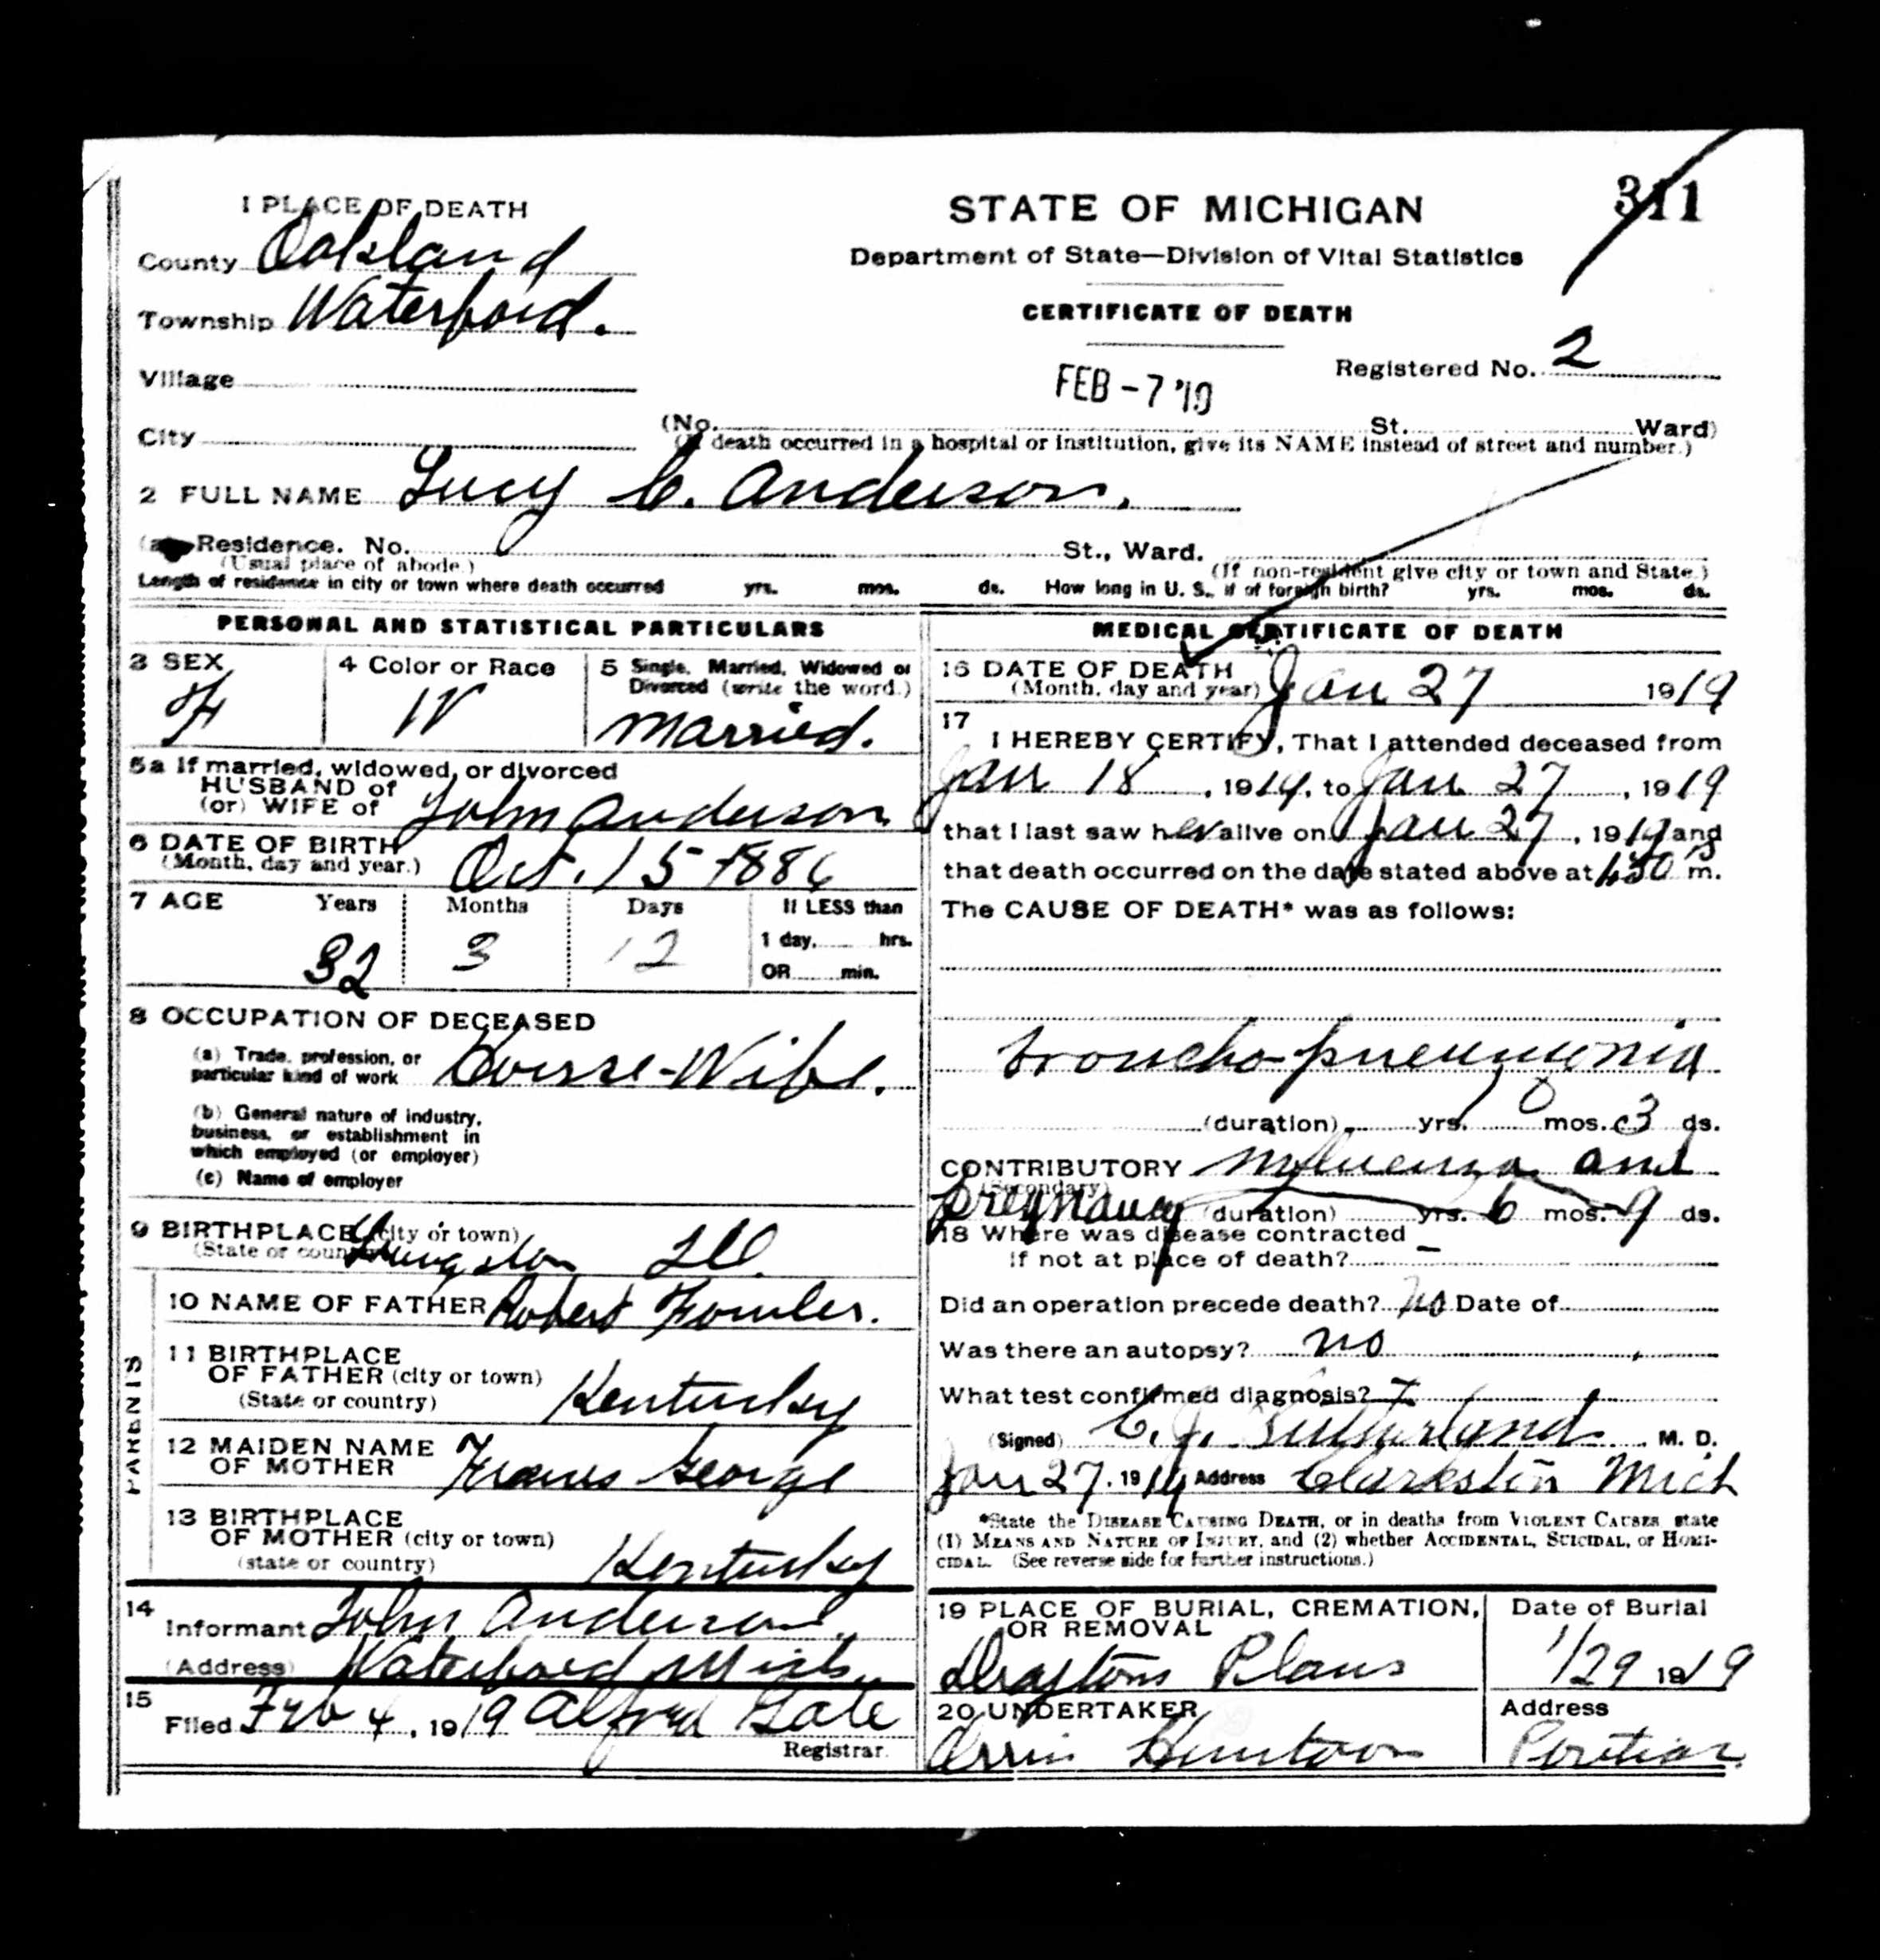 1 PLACE OF DEATH
County Oakland
Township Waterford.
Village
City
STATE OF MICHIGAN
Department of State—Division of Vital Statistics
CERTIFICATE OF DEATH
311
Registered No. 2
FEB -7 '19
(No. St. Ward)
(If death occurred in a hospital or institution, give its NAME instead of street and number.)
2 FULL NAME Lucy C. Anderson.
(a) Residence. No. St., Ward.
(Usual place of abode.) (If non-resident give city or town and State.)
Length of residence in city or town where death occurred yrs. mos. ds. How long in U. S., if of foreign birth? yrs. mos. ds.
PERSONAL AND STATISTICAL PARTICULARS
3 SEX
F
4 Color or Race
W
5 Single, Married, Widowed or
Divorced (write the word.)
Married.
5a If married, widowed, or divorced
HUSBAND of
(or) WIFE of John Anderson
6 DATE OF BIRTH
(Month, day and year.) Oct. 15 1886
7 AGE Years Months Days If LESS than
1 day, hrs.
32 3 12
OR min.
8 OCCUPATION OF DECEASED
(a) Trade, profession, or
particular kind of work House-Wife.
(b) General nature of industry,
business, or establishment in
which employed (or employer)
(c) Name of employer
9 BIRTHPLACE (city or town)
(State or country) Livingston Ill.
PARENTS
10 NAME OF FATHER Robert Fowler.
11 BIRTHPLACE
OF FATHER (city or town)
(State or country) Kentucky
12 MAIDEN NAME
OF MOTHER George
13 BIRTHPLACE
OF MOTHER (city or town)
(state or country) Kentucky
14
Informant John Anderson
(Address) Waterford Mich.
15
Filed Feb 4, 1919 Alfred Gale
Registrar.
MEDICAL CERTIFICATE OF DEATH
16 DATE OF DEATH
(Month, day and year) Jan 27 1919
17
I HEREBY CERTIFY, That I attended deceased from
Jan 18, 1919, to Jan 27, 1919
that I last saw her alive on Jan 27, 1919 and
that death occurred on the date stated above at m.
The CAUSE OF DEATH* was as follows:
broncho-pneumonia
(duration) yrs. mos. 3 ds.
CONTRIBUTORY Influenza and
(Secondary)
pregnancy (duration) yrs. 6 mos. 9 ds.
18 Where was disease contracted
if not at place of death? —
Did an operation precede death? no Date of
Was there an autopsy? no
What test confirmed diagnosis?
(Signed) C. J. Sutherland M. D.
Jan 27, 1919 Address Clarkston Mich
*State the DISEASE CAUSING DEATH, or in deaths from VIOLENT CAUSES state
(1) MEANS AND NATURE OF INJURY, and (2) whether ACCIDENTAL, SUICIDAL, or HOMI-
CIDAL. (See reverse side for further instructions.)
19 PLACE OF BURIAL, CREMATION,
OR REMOVAL
Draytons Plans
Date of Burial
1/29 1919
20 UNDERTAKER
Orrin Huntoon
Address
Pontiac